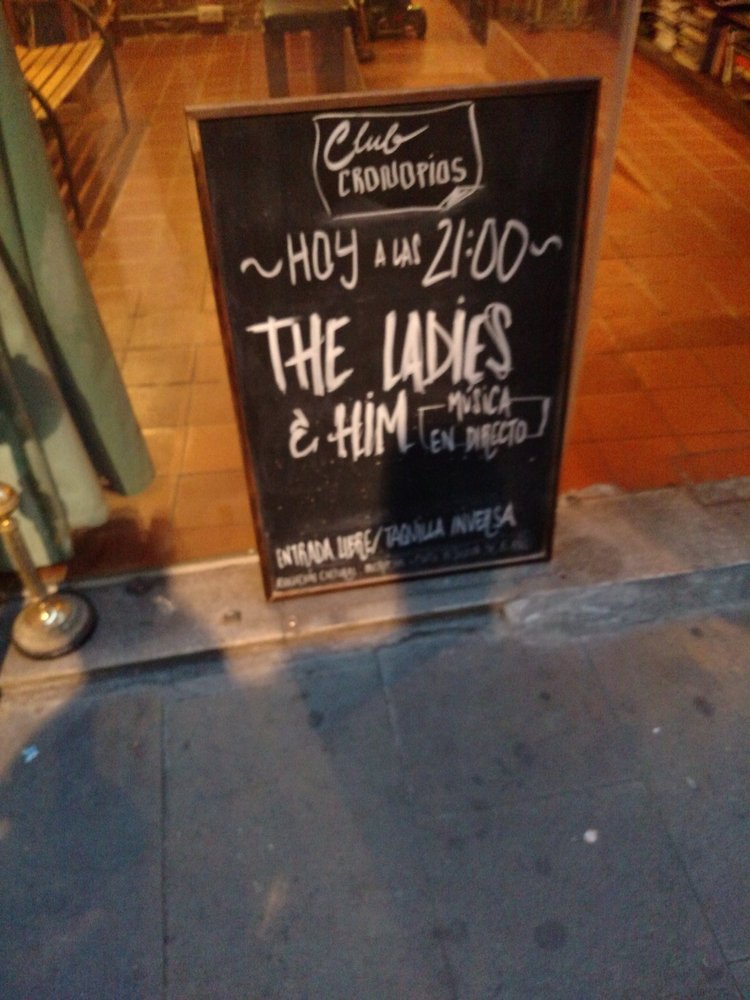 Club
CRONOPIOS
~HOY A LAS 21:00~
THE LADIES
& HIM
MÚSICA
EN DIRECTO
ENTRADA LIBRE/TAQUILLA INVERSA